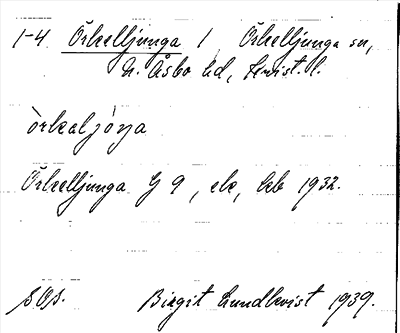 1-4 Örkelljunga / Örkelljunga sn,
N. Åsbo hd, Krist. l.
örkaljoŋa
Örkelljunga G 9, ek, kb 1932.
sOs. Birgit Lundkvist 1939.